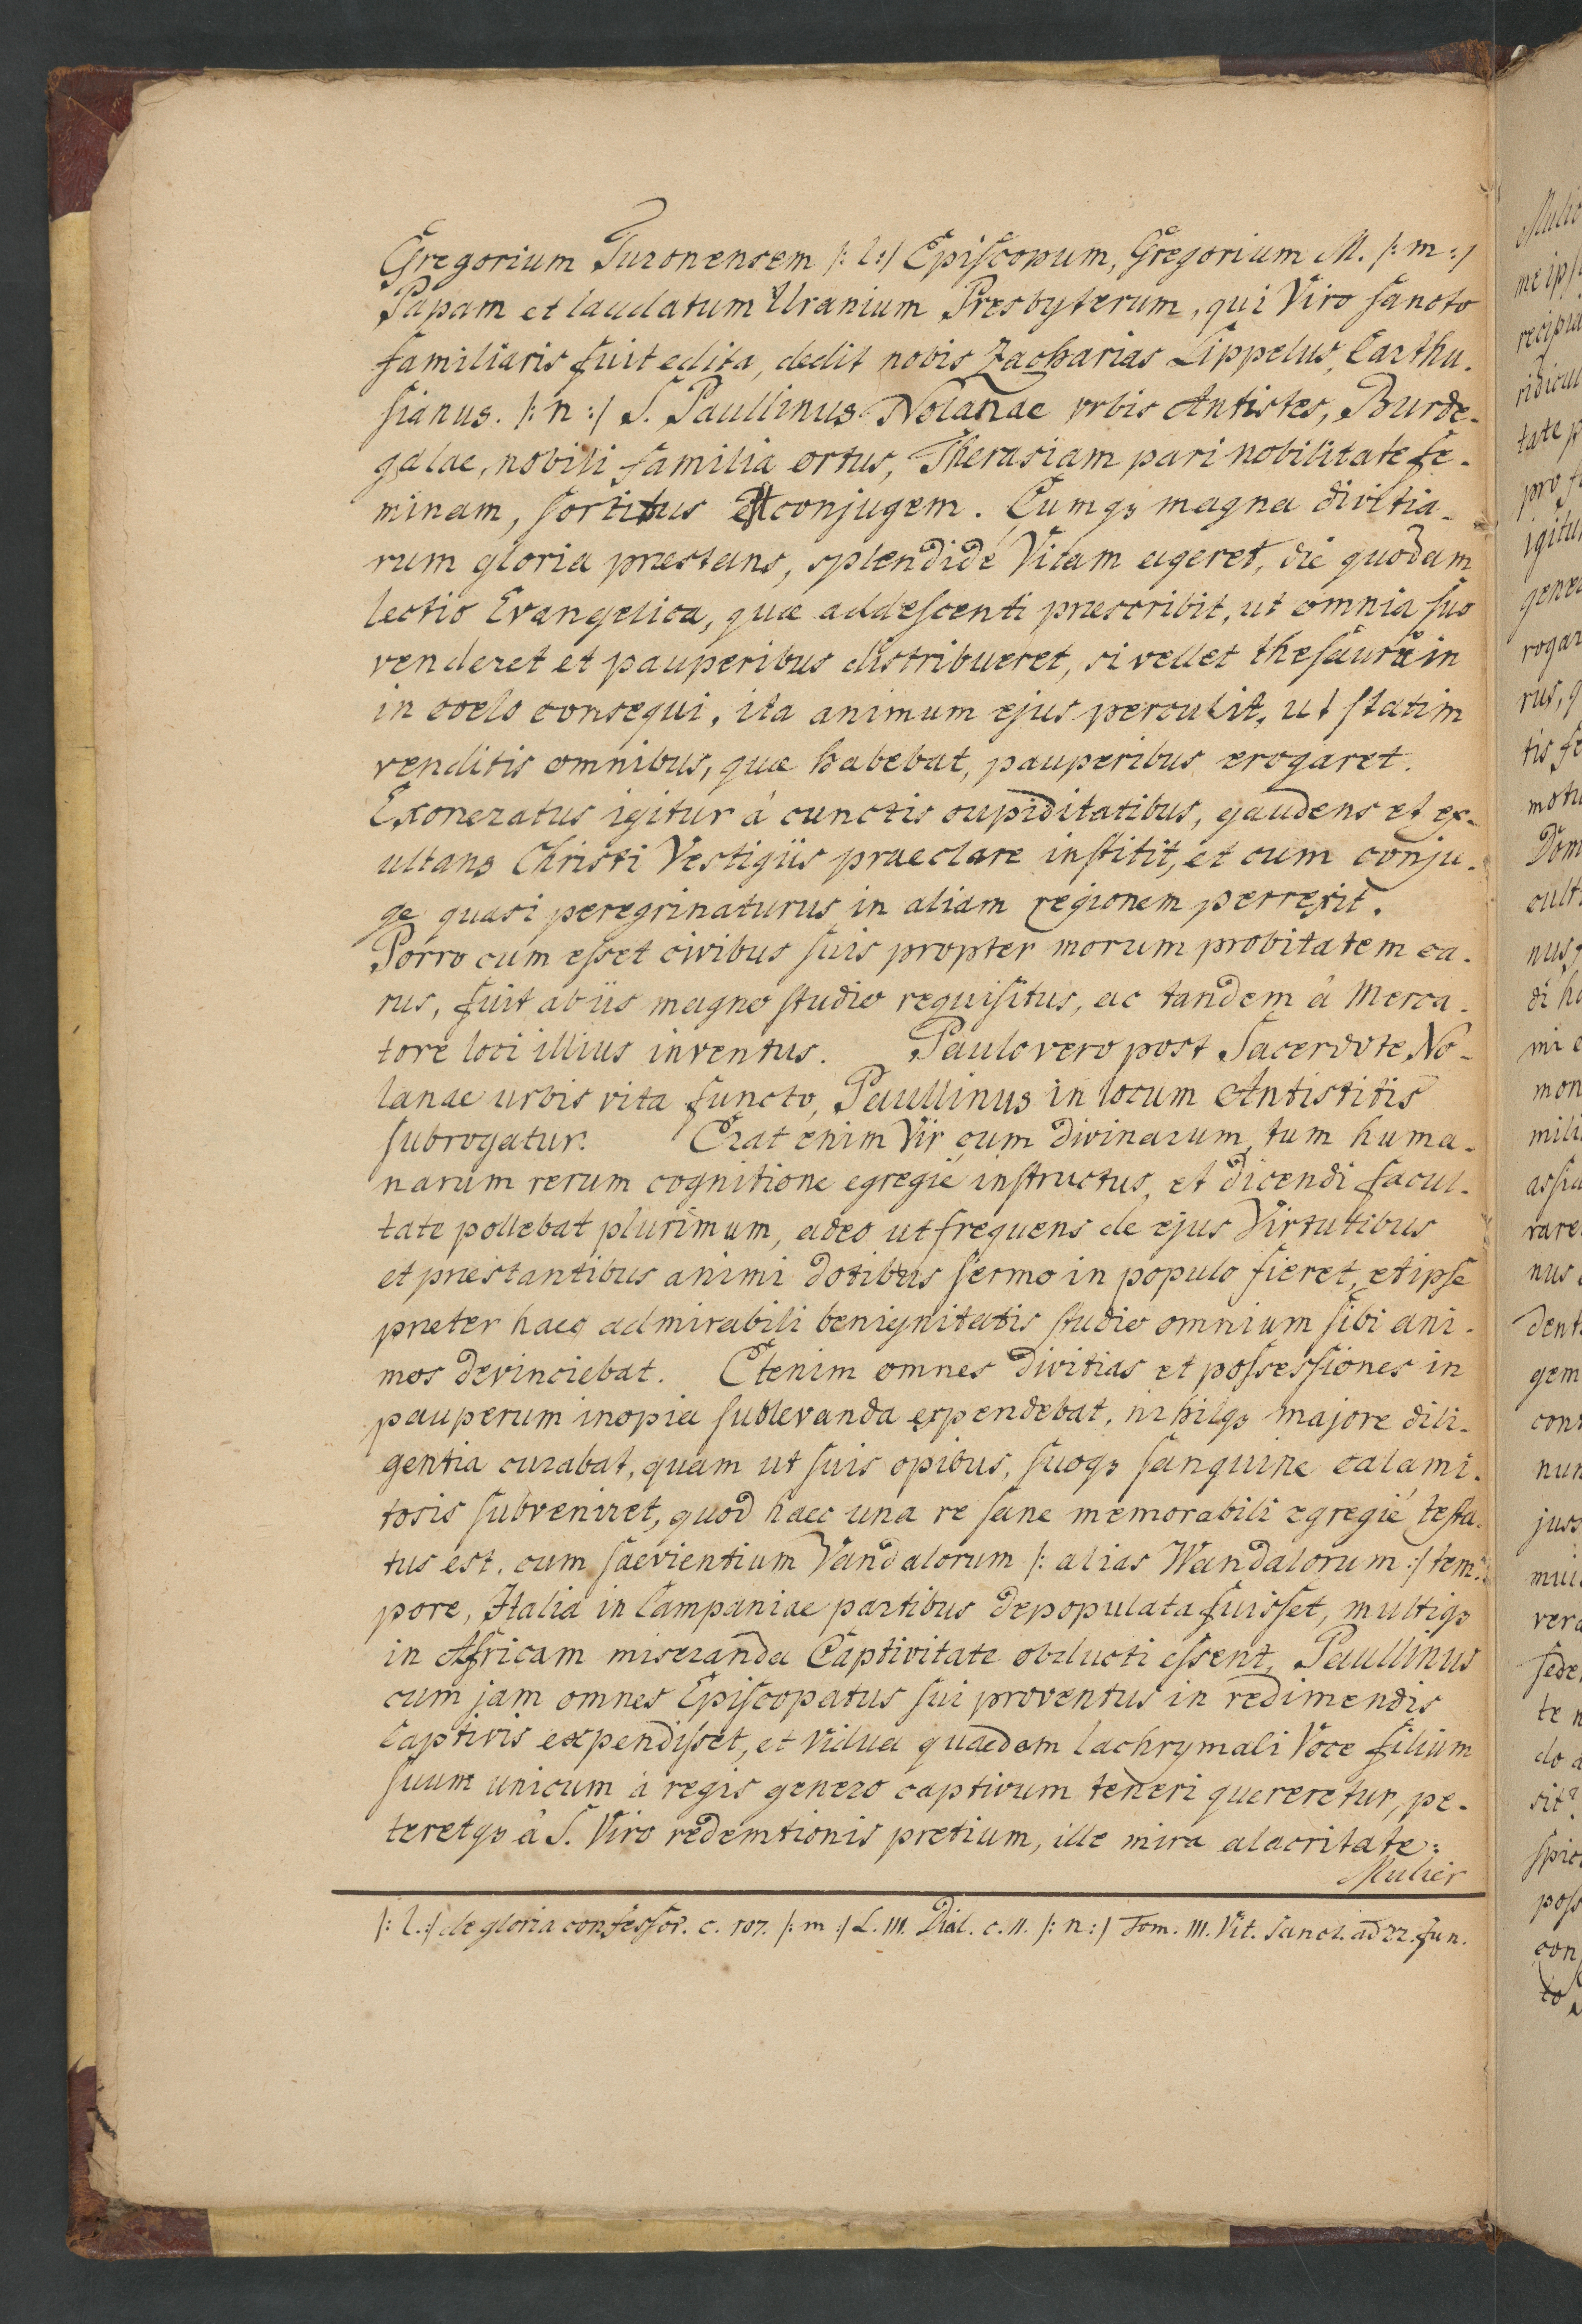 Gregorium Turonensem /: l :/ Episcopum, Gregorium M. /: m :/
Papam et laudatum Uranium Presbyterum, qui Viro sancto
familiaris fuit edita, dedit nobis Zacharias Lippelus, Carthu-
sianus. /: n :/ S. Paullinus Nolanae urbis Antistes, Burde-
galae, nobili familia ortus, Therasiam pari nobilitate fe-
minam, sortitus est conjugem. Cumqȝ magna divitia-
rum gloria præstans, splendidè Vitam ageret, die quodam
lectio Evangelica, quæ adolescenti præscribit, ut omnia sua
venderet et pauperibus distribueret, si vellet thesaurũ in
in coelo consequi, ita animum ejus perculit, ut statim
venditis omnibus, quæ habebat, pauperibus erogaret.
Exoneratus igitur à cunctis cupiditatibus, gaudens et ex-
ultans Christi Vestigiis praeclare institit, et cum conju-
ge quasi peregrinaturus in aliam regionem perrexit.
Porro cum esset civibus suis propter morum probitatem ca-
rus, fuit ab iis magno studio requisitus, ac tandem â Merca-
tore loci illius inventus. Paulo vero post Sacerdote No-
lanae urbis vita functo, Paullinus in locum Antistitis
subrogatur. Erat enim Vir cum divinarum, tum huma-
narum rerum cognitione egregiè instructus, et dicendi facul-
tate pollebat plurimum, adeo ut frequens de ejus Virtutibus
et præstantibus animi dotibus sermo in populo fieret, et ipse
præter haec admirabili benignitatis studio omnium sibi ani-
mos devinciebat. Etenim omnes divitias et possessiones in
pauperum inopia sublevanda expendebat, nihilqȝ majore dili-
gentia curabat, quam ut suis opibus, suoqȝ sanguine calami-
tosis subveniret, quod haec una re sane memorabili egregiè testa-
tus est, cum saevientium Vandalorum /: alias Wandalorum :/ tem-
pore, Italia in Campaniae partibus depopulata fuisset, multiqȝ
in Africam miseranda Captivitate obducti essent, Paullinus
cum jam omnes Episcopatus sui proventus in redimendis
Captivis expendisset, et Vidua quaedam lachrymali Voce filium
suum unicum à regis genero captivum teneri quereretur, pe-
teretqȝ â S. Viro redemtionis pretium, ille mira alacritate:
Mulier
/: l. :/ de gloria confessor. c. 107. /: m :/ L. III. Dial. c. II. /: n :/ Tom. III. Vit. Sanct. ad 22. Jun.